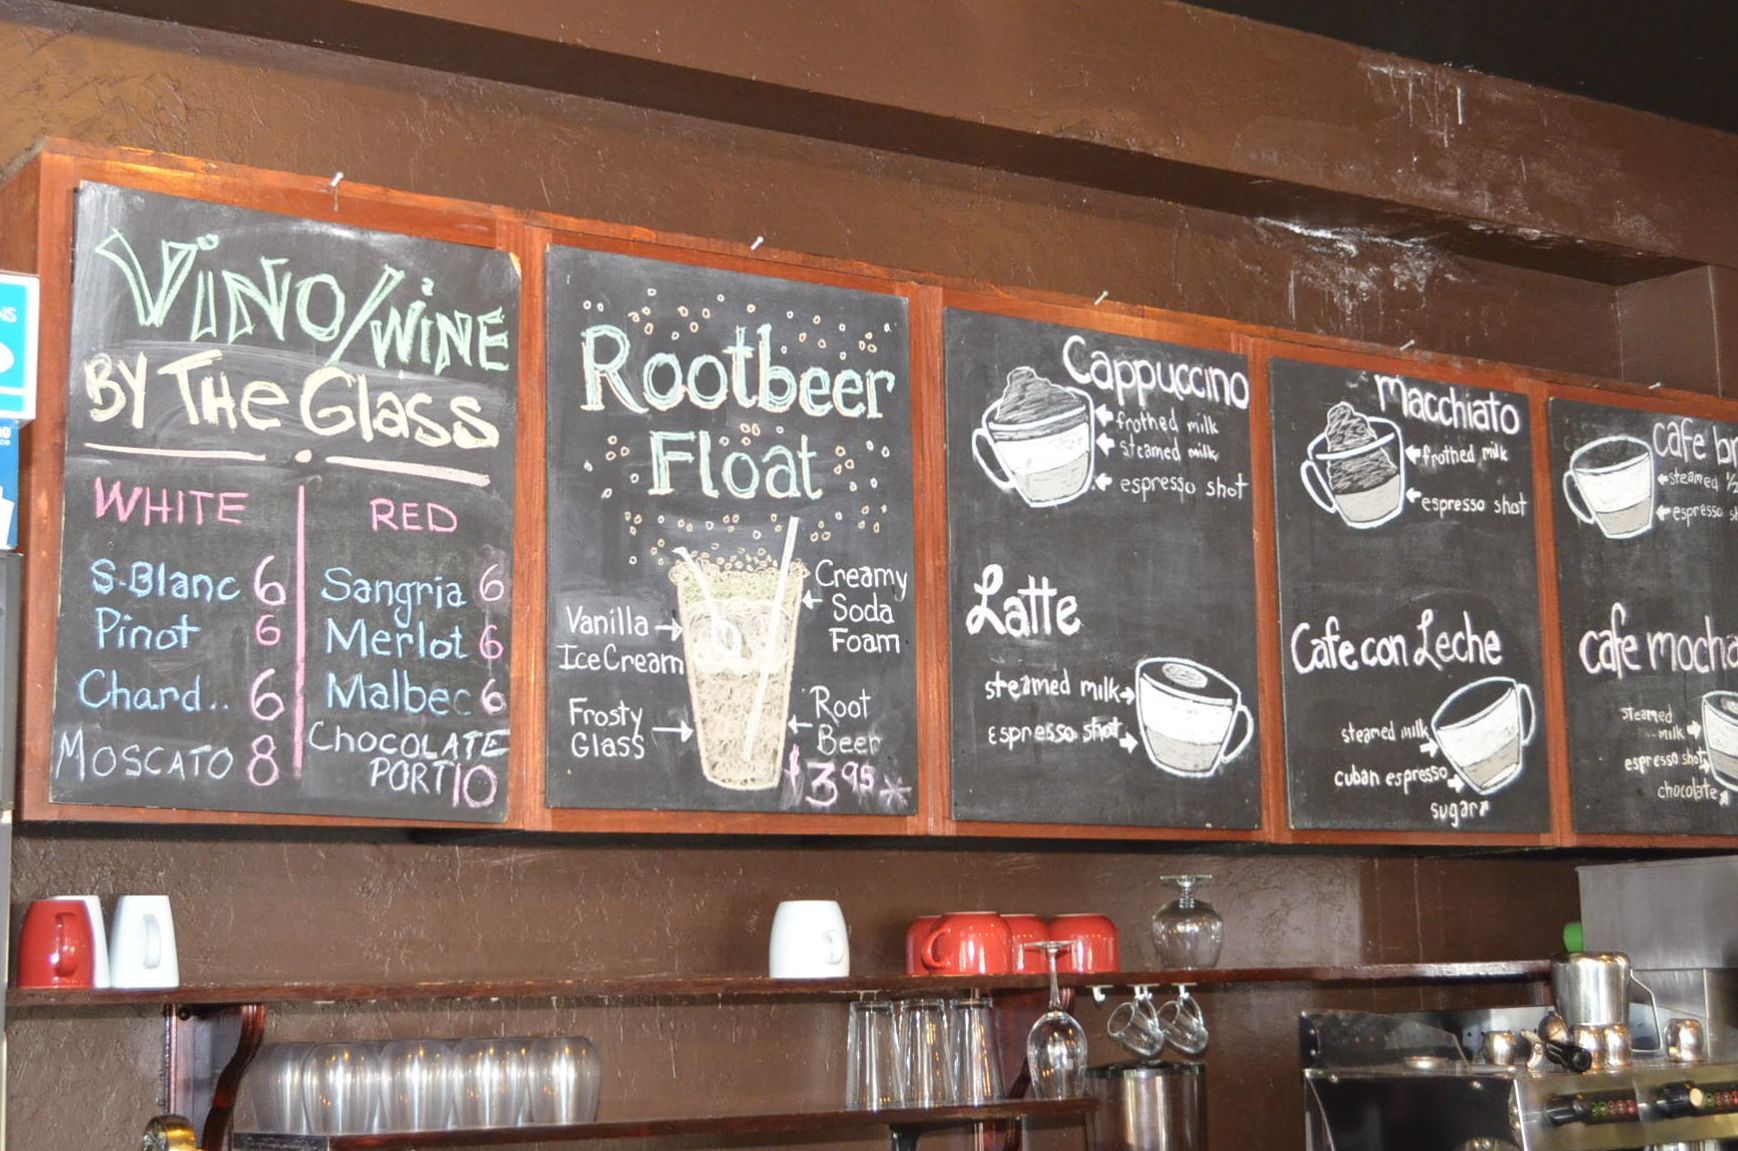 Vino/Wine
By The Glass
WHITE
S.Blanc 6
Pinot 6
Chard.. 6
Moscato 8
RED
Sangria 6
Merlot 6
Malbec 6
Chocolate
Port 10
Rootbeer
Float
Vanilla
Ice Cream
Frosty
Glass
Creamy
Soda
Foam
Root
Beer
$3.95*
Cappuccino
frothed milk
steamed milk
espresso shot
Latte
steamed milk
espresso shot
Macchiato
frothed milk
espresso shot
Cafe con Leche
steamed milk
cuban espresso
sugar
cafe
steamed 1/2
espresso
cafe mocha
steamed
milk
espresso shot
chocolate